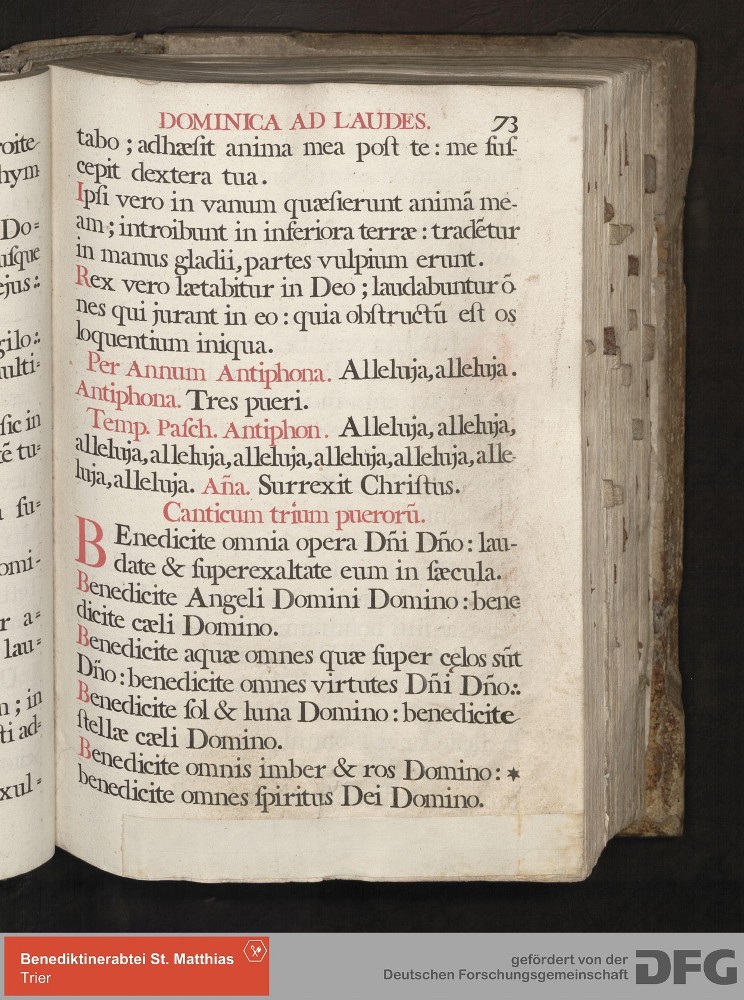 oite
hym
Do=
uſque
ejus:.
gilo:.
ulti=
ſic in
tẽ tu=
ſu=
omi-
r a=
lau=
n; in
ti ad=
xul=
DOMINICA AD LAUDES. 73
tabo; adhæſit anima mea poſt te: me ſuſ-
cepit dextera tua.
Ipſi vero in vanum quæſierunt animã me-
am; introibunt in inferiora terræ: tradẽtur
in manus gladii, partes vulpium erunt.
Rex vero lætabitur in Deo; laudabuntur õ
nes qui jurant in eo: quia obſtructũ eſt os
loquentium iniqua.
Per Annum Antiphona. Alleluja, alleluja.
Antiphona. Tres pueri.
Temp. Paſch. Antiphon. Alleluja, alleluja,
alleluja, alleluja, alleluja, alleluja, alleluja, alle-
luja, alleluja. Aña. Surrexit Chriſtus.
Canticum trium puerorũ.
BEnedicite omnia opera Dñi Dño: lau-
date & ſuperexaltate eum in ſæcula.
Benedicite Angeli Domini Domino: bene
dicite cæli Domino.
Benedicite aquæ omnes quæ ſuper cęlos sũt
Dño: benedicite omnes virtutes Dñi Dño:.
Benedicite ſol & luna Domino: benedicite
ſtellæ cæli Domino.
Benedicite omnis imber & ros Domino: *
benedicite omnes ſpiritus Dei Domino.
Benediktinerabtei St. Matthias
Trier
gefördert von der
Deutschen Forschungsgemeinschaft
DFG